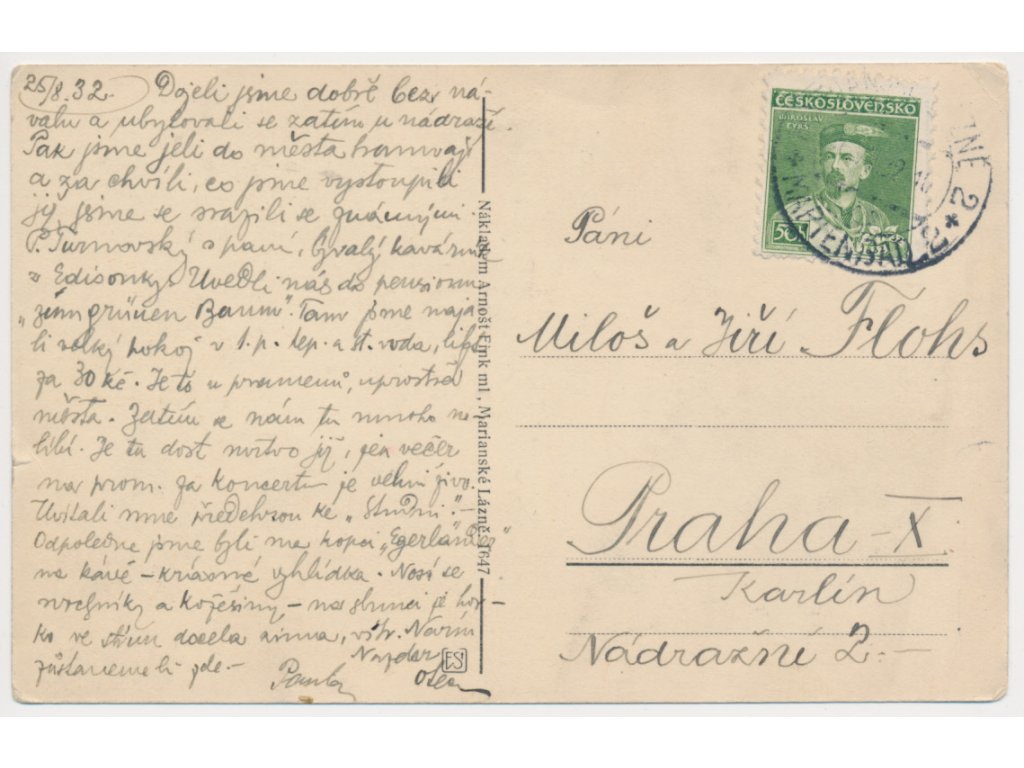 25/8.32. Dojeli jsme dobře bez ná-
valu a ubytovali se zatím u nádraží.
Pak jsme jeli do města tramvají
a za chvíli, co jsme vystoupili
již jsme se srazili se známými
P. Turnovský s paní, bývalý kavárník
z Edisonky. Uvedli nás do pensionu
„zum grünen Baum". Tam jsme naja-
li velký pokoj v 1.p. tep. a st. voda, lift
za 30 Kč. Je to u pramenů, uprostřed
města. Zatím se nám tu mnoho ne-
líbí. Je tu dost mrtvo již, jen večer
na prom. za koncertu je velmi živo.
Uvítali mne předehrou ke „Studni".-
Odpoledne jsme byli na kopci „Egerländer"
na kávě - krásná vyhlídka. Nosí se
svrchníky a kožešiny - na slunci je hor-
ko ve stínu docela zima, vítr. Nevím
zůstaneme-li zde.-
Nazdar
Otec
Nákladem Arnošt Fink ml., Marianské Lázně. 1647
ČESKOSLOVENSKO
MIROSLAV
TYRŠ
50h
MARIENBAD 2
ZNĚ 2
Páni
Miloš a Jiří Flohs
Praha-X
Karlín
Nádražní 2.-